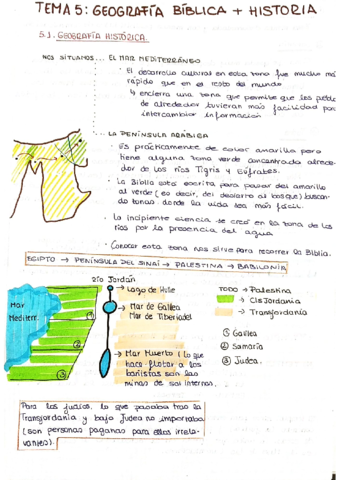 TEMA 5: GEOGRAFÍA BÍBLICA + HISTORIA
5.1. GEOGRAFÍA HISTÓRICA.
NOS SITUAMOS... EL MAR MEDITERRÁNEO
· El desarrollo cultural en esta zona fue mucho más
rápido que en el resto de mundo
↳ encierra una zona que permite que los pueblos
de alrededor tuvieran más facilidad por
intercambiar información
LA PENÍNSULA ARÁBICA
· Es prácticamente de color amarillo pero
tiene alguna zona verde concentrada alrede-
dor de los ríos Tigris y Eúfrates.
· La Biblia está escrita para pasar del amarillo
al verde (es decir, del desierto al bosque) buscan-
do zonas donde la vida sea más fácil.
· La incipiente ciencia se creó en la zona de los
ríos por la presencia del agua
· Conocer esta zona nos sirve para recorrer la Biblia.
EGIPTO → PENÍNSULA DEL SINAÍ → PALESTINA → BABILONIA
Río Jordán
Mar
Mediterr.
①
②
③
→ Lago de Hule
→ Mar de Galilea
Mar de Tiberiades
→ Mar Muerto (lo que
hace flotar a los
bañistas son las
minas de sal internas.
TODO → Palestina
→ Cisjordania
→ Transjordania
① Galilea
② Samaría
③ Judea.
Para los judíos, lo que pasaba tras la
Transjordania y bajo Judea no importaba
(son personas paganas para ellos irrele-
vantes).